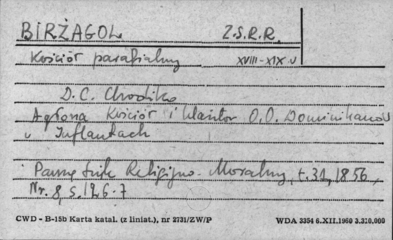 BIRŻAGOL Z.S.R.R.
Kościół parafialny XVIII-XIX w
D.C. Chodźko
Agłona Kościół i klasztor O.O. Dominikanów
w Inflantach
Pamiętnik Religijno-Moralny, t.31, 1856,
Nr. 8, s. 126-7
CWD - B-15b Karta katal. (z liniat.), nr 2731/ZW/P WDA 3354 6.XII.1960 2.220.000